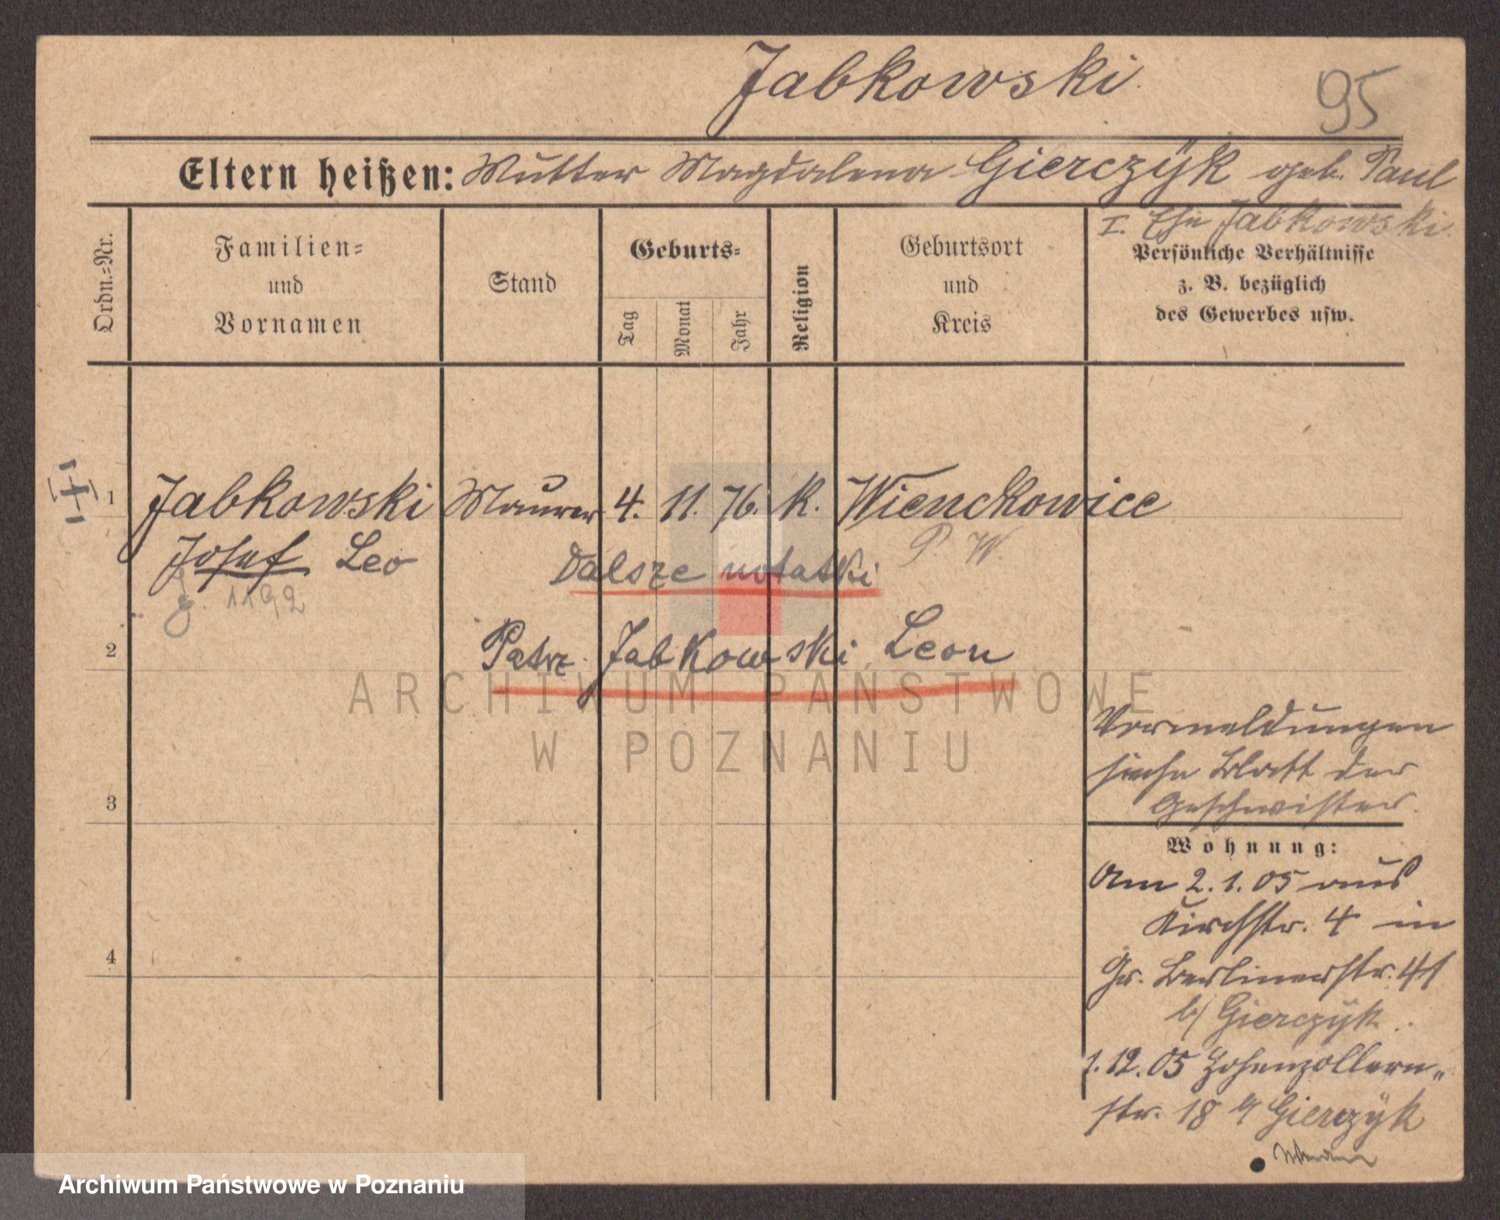 Jabkowski.
95
Eltern heißen: Mutter Magdalena Gierczÿk geb. Paul
I. Ehe Jabkowski.
Ordn.-Nr.
Familien-
und
Vornamen
Stand
Geburts-
Tag
Monat
Jahr
Religion
Geburtsort
und
Kreis
Persönliche Verhältnisse
z. B. bezüglich
des Gewerbes usw.
1 Jabkowski Maurer 4. 11. 76. K. Wienckowice
P. W.
Josef Leo
g. 1192
Dalsze notatki
2
Patrz Jabkowski Leon
Vormeldungen
siehe Blatt der
Geschwister.
3
Wohnung:
Am 2.1.05 aus
Kirchstr. 4 in
Gr. Berlinerstr. 41
b/ Gierczÿk.
4
1.12.05 Hohenzollern-
str. 18 b/ Gierczÿk
ARCHIWUM PAŃSTWOWE
W POZNANIU
Archiwum Państwowe w Poznaniu